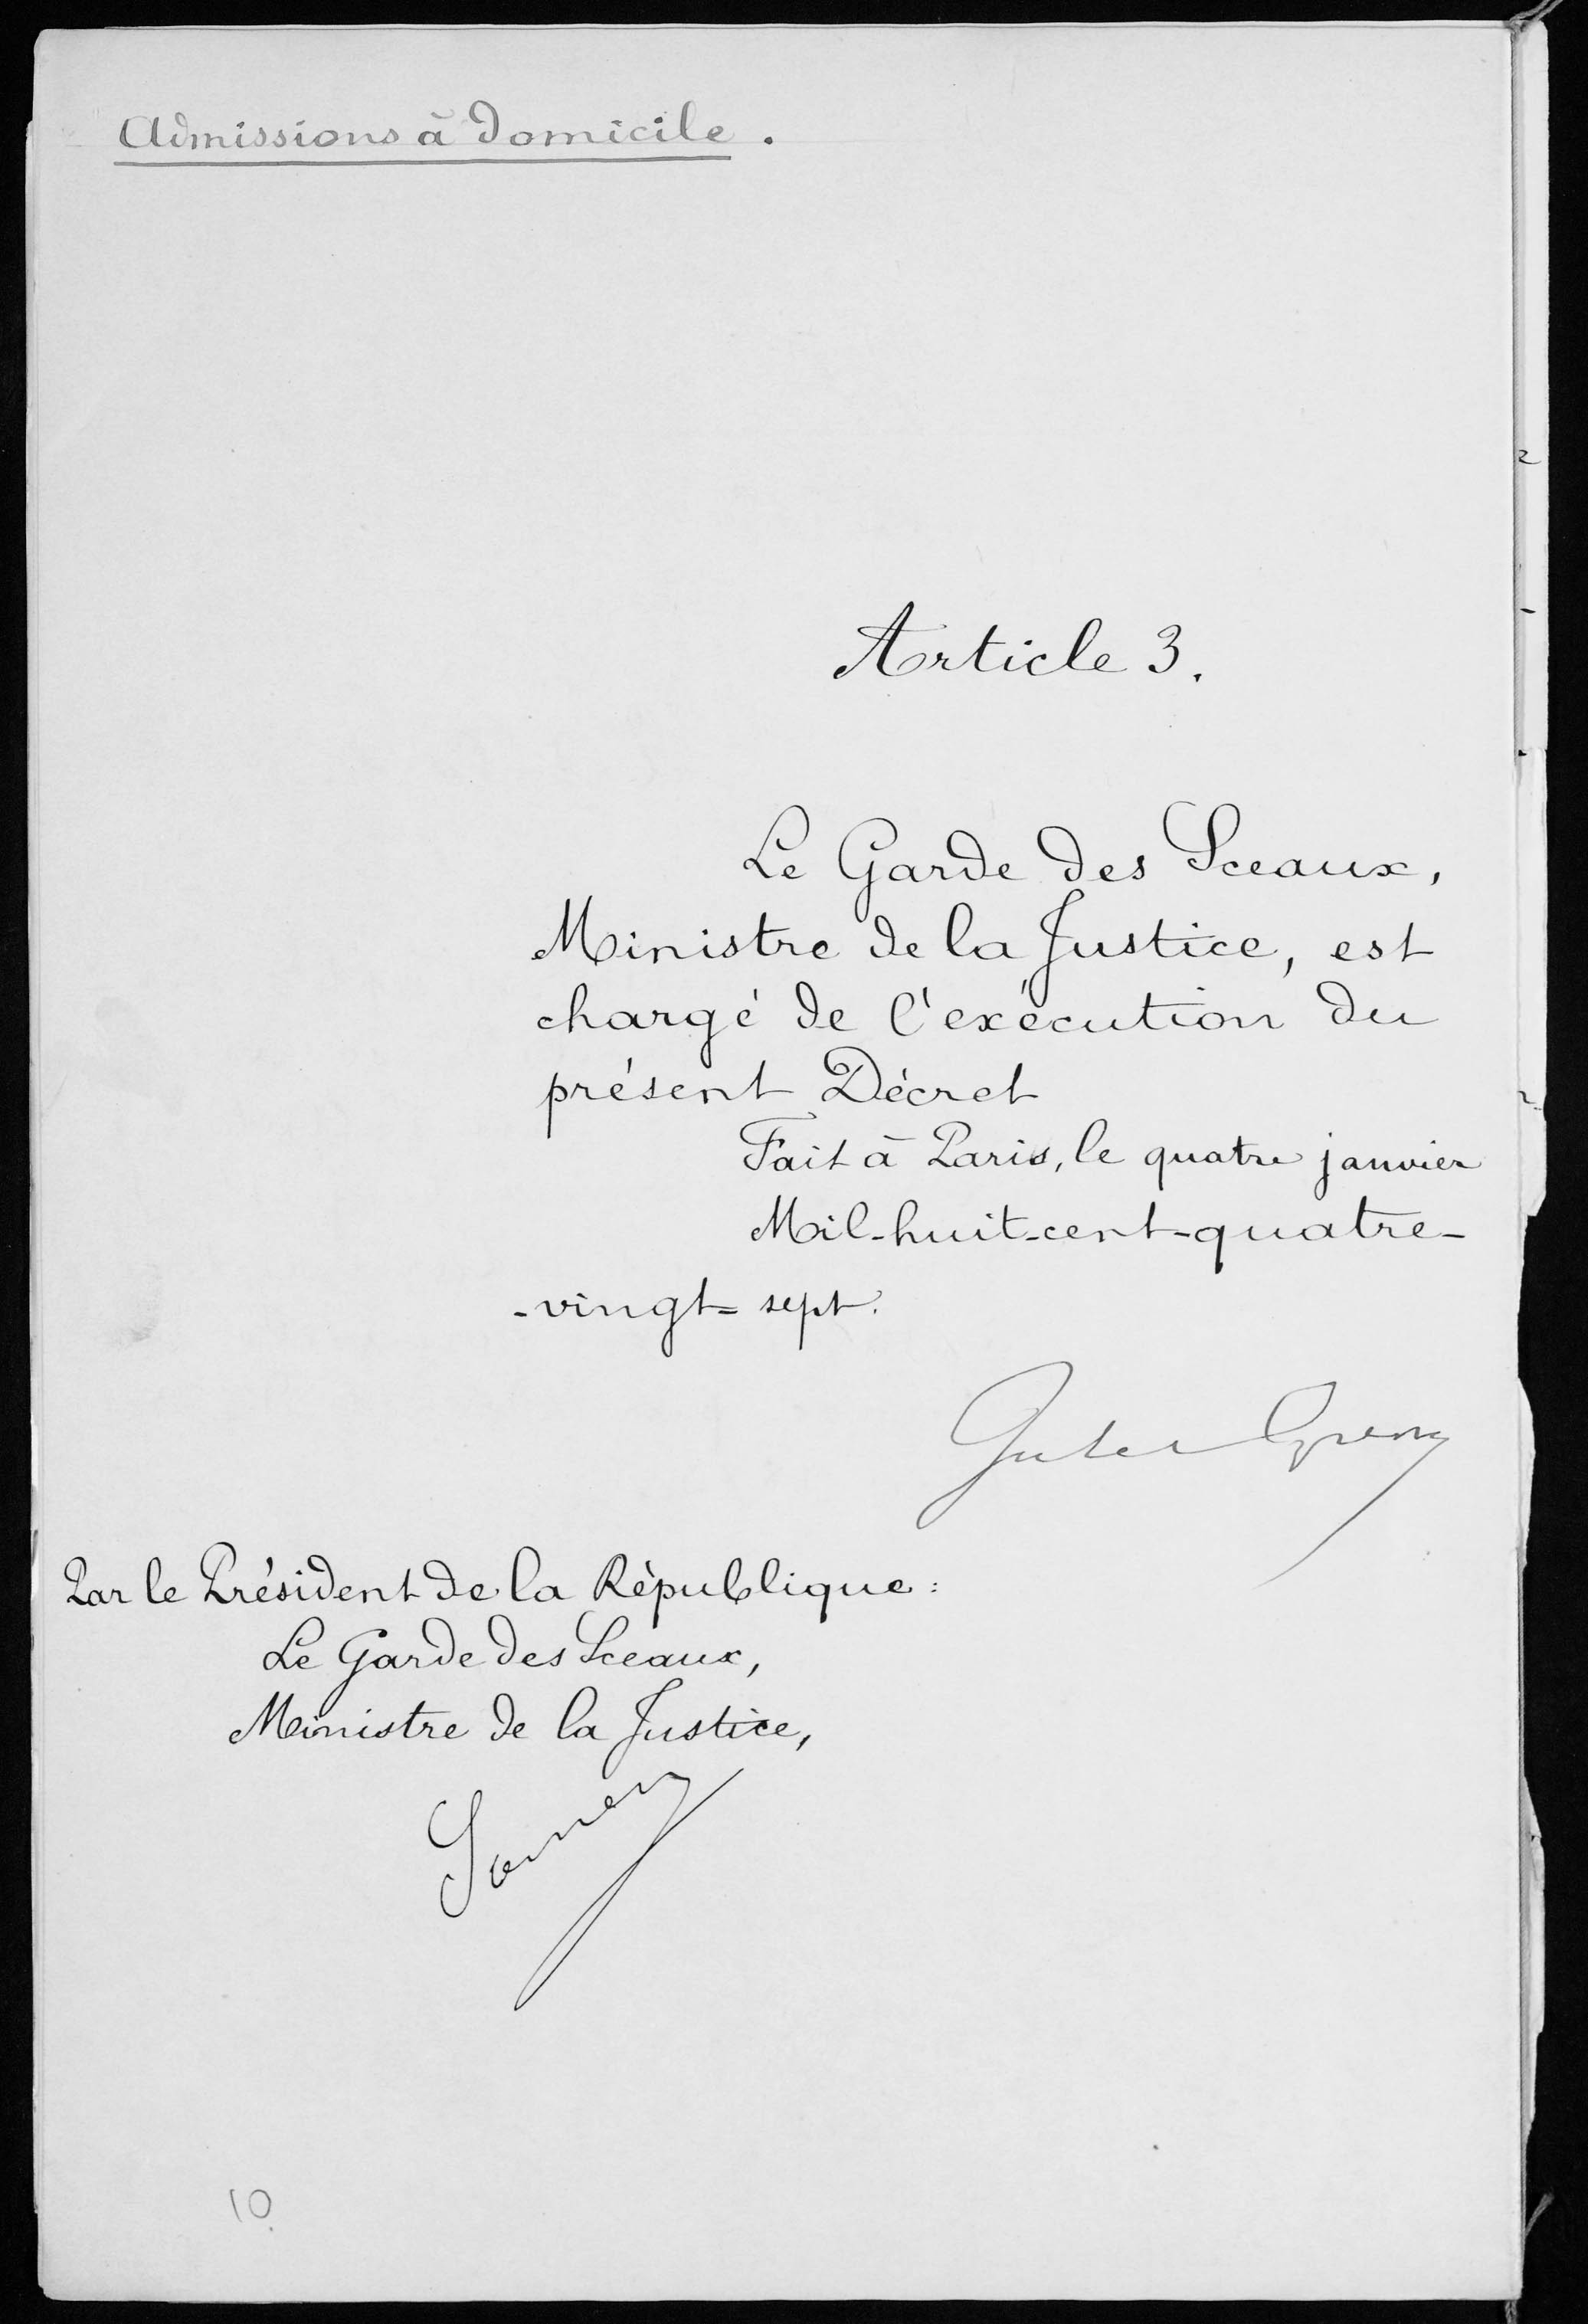 Admissions à Domicile.
Article 3.
Le Garde des Sceaux,
Ministre de la Justice, est
chargé de l'exécution du
présent Décret
Fait à Paris, le quatre janvier
Mil-huit-cent-quatre-
-vingt-sept.
Jules Grévy
Par le Président de la République:
Le Garde des Sceaux,
Ministre de la Justice,
Sarrien
10